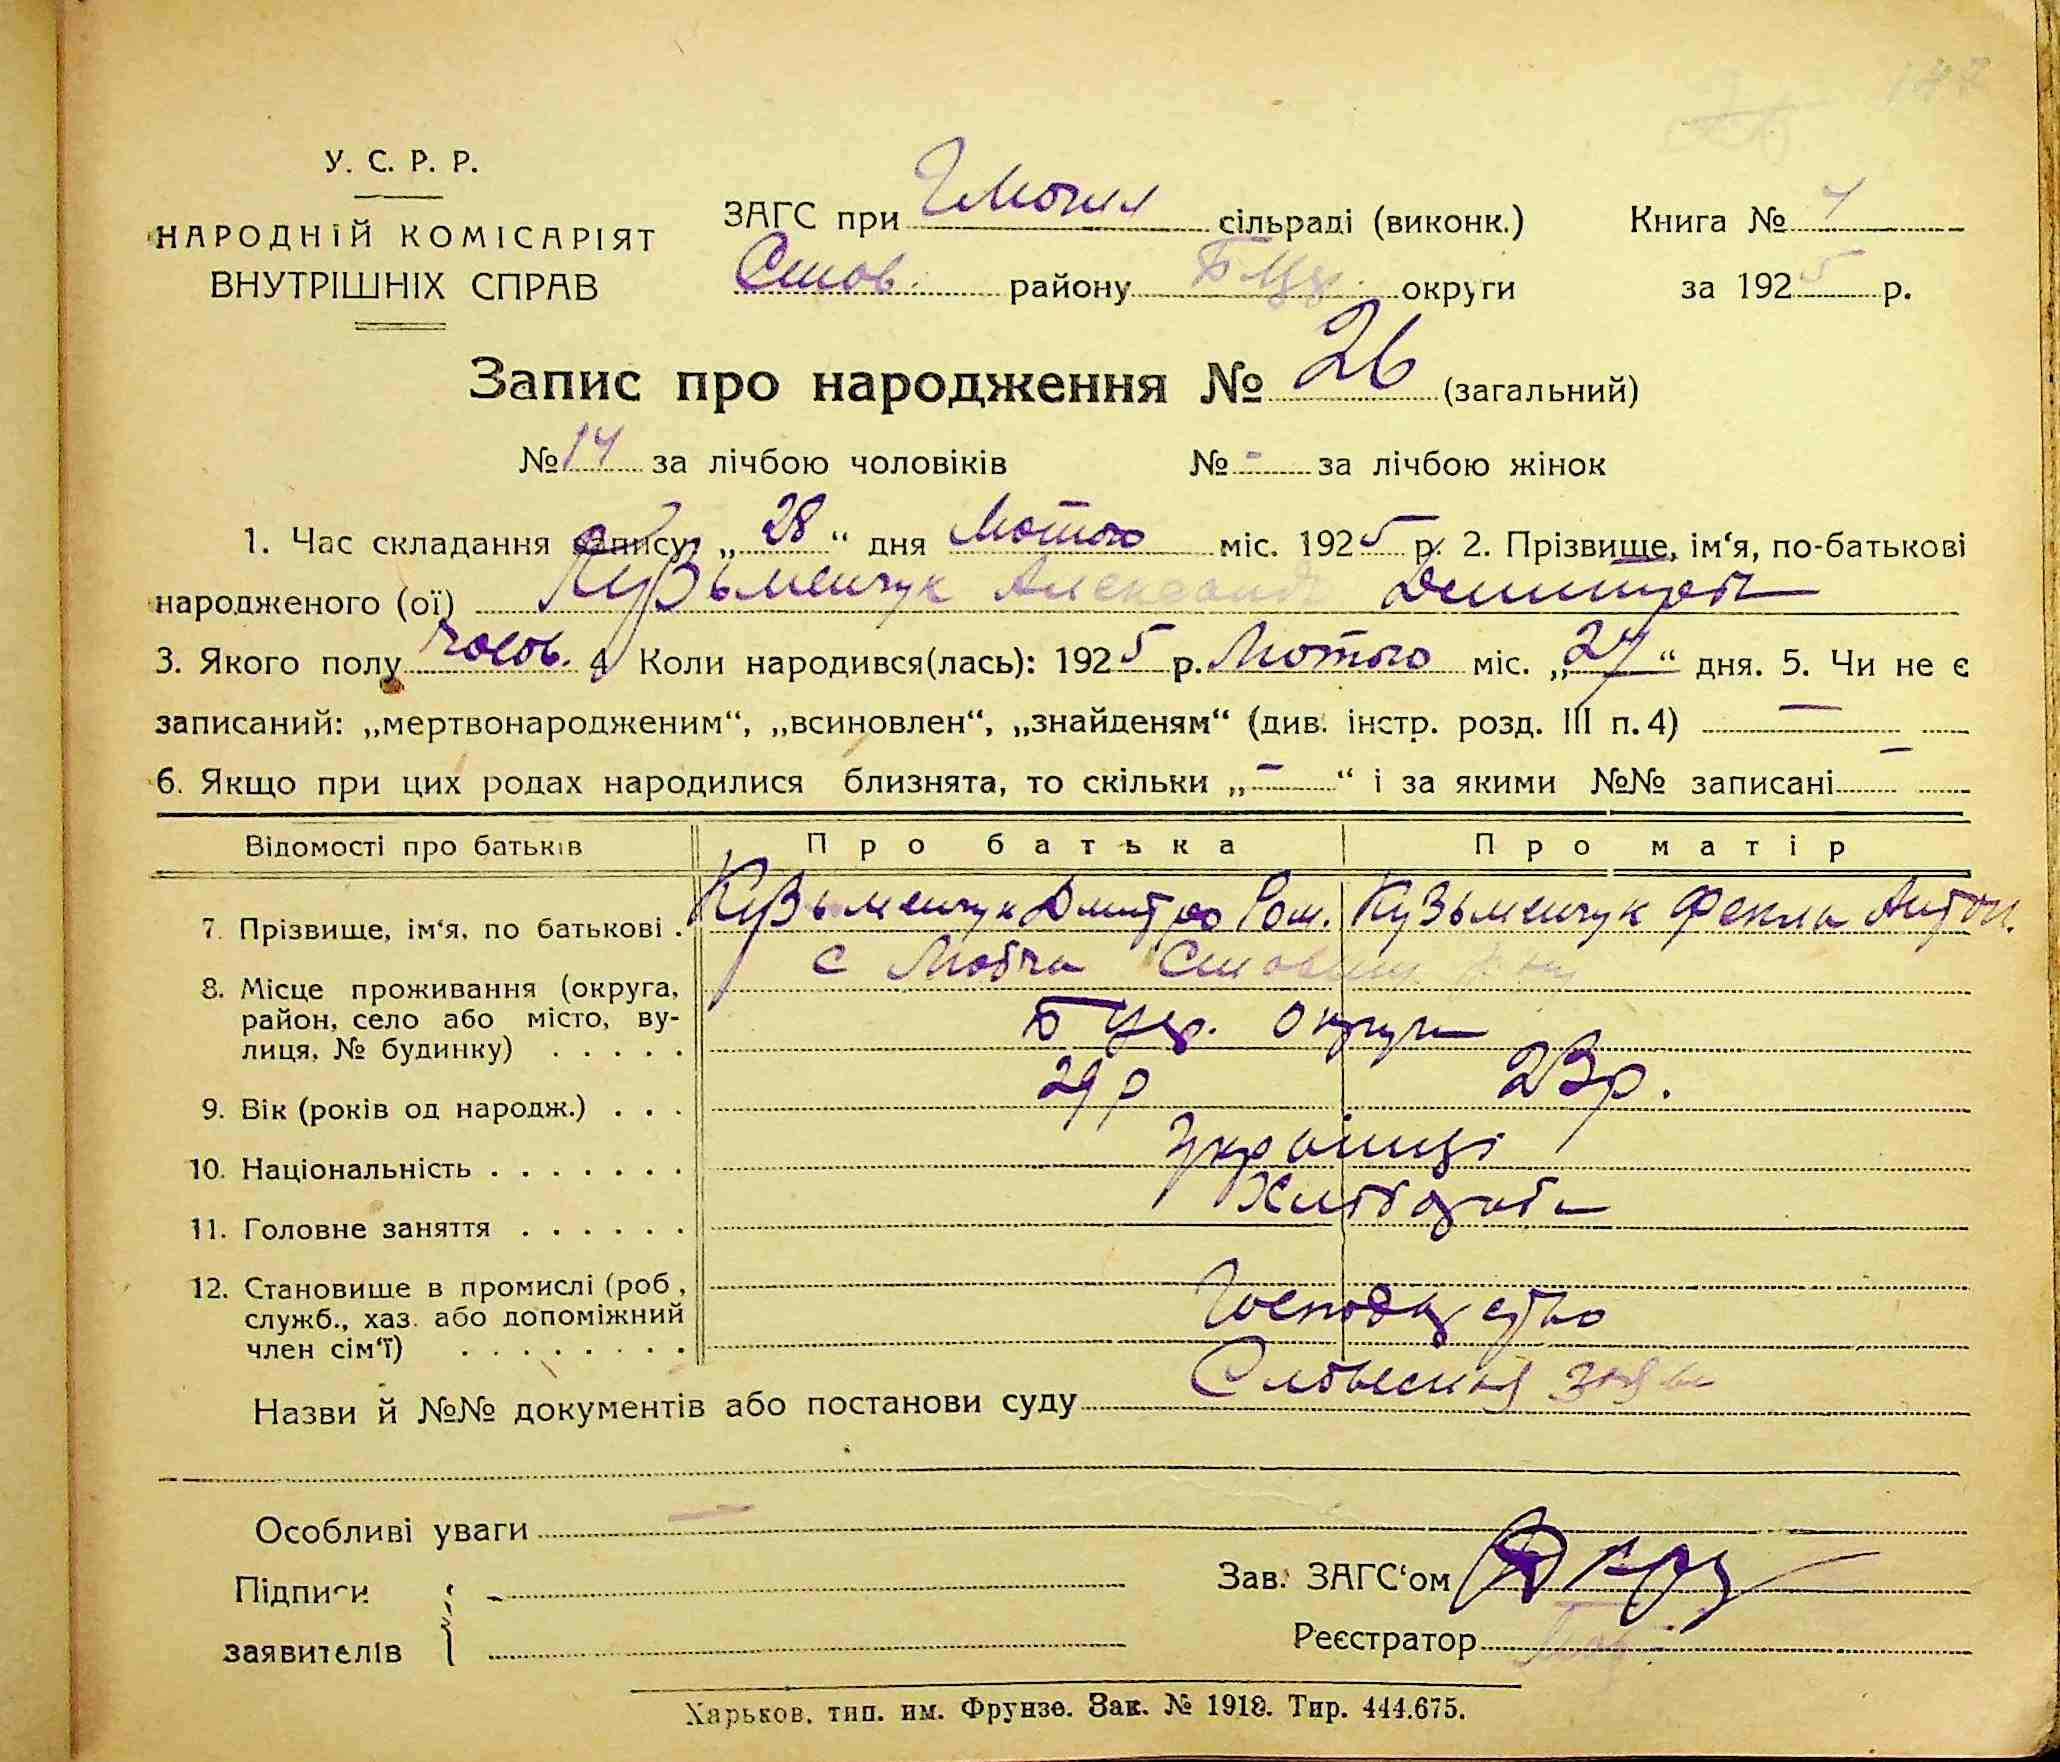 У. С. Р. Р.
НАРОДНІЙ КОМІСАРІЯТ
ВНУТРІШНІХ СПРАВ
ЗАГС при сільраді (виконк.)
району Б Цер. округи
Книга №
за 1925 р.
Запис про народження № 26 (загальний)
№ 14 за лічбою чоловіків № - за лічбою жінок
1. Час складання запису „28“ дня Лютого міс. 1925 р. 2. Прізвище, ім‘я, по-батькові
народженого (ої) Кузьменчук Александр
3. Якого полу чолов. 4 Коли народився(лась): 1925 р. Лютого міс. „24“ дня. 5. Чи не є
записаний: „мертвонародженим“, „всиновлен“, „знайденям“ (див. інстр. розд. III п. 4) —
6. Якщо при цих родах народилися близнята, то скільки „—“ і за якими №№ записані —
Відомості про батьків Про батька Про матір
7. Прізвище, ім‘я, по батькові . Кузьменчук Дмитро Ром. Кузьменчук Фекла Антон.
8. Місце проживання (округа,
район, село або місто, ву-
лиця, № будинку) . . . . .
с
Б Цер. округи
9. Вік (років од народж.) . . . 29 р 23 р.
10. Національність . . . . . . . Українці
11. Головне заняття . . . . . .
12. Становище в промислі (роб.,
служб., хаз. або допоміжний
член сім‘ї) . . . . . . . .
Назви й №№ документів або постанови суду Словесная заява
Особливі уваги —
Підписи
заявителів
Зав. ЗАГС‘ом
Реєстратор
Харьков, тип. им. Фрунзе. Зак. № 1918. Тир. 444.675.